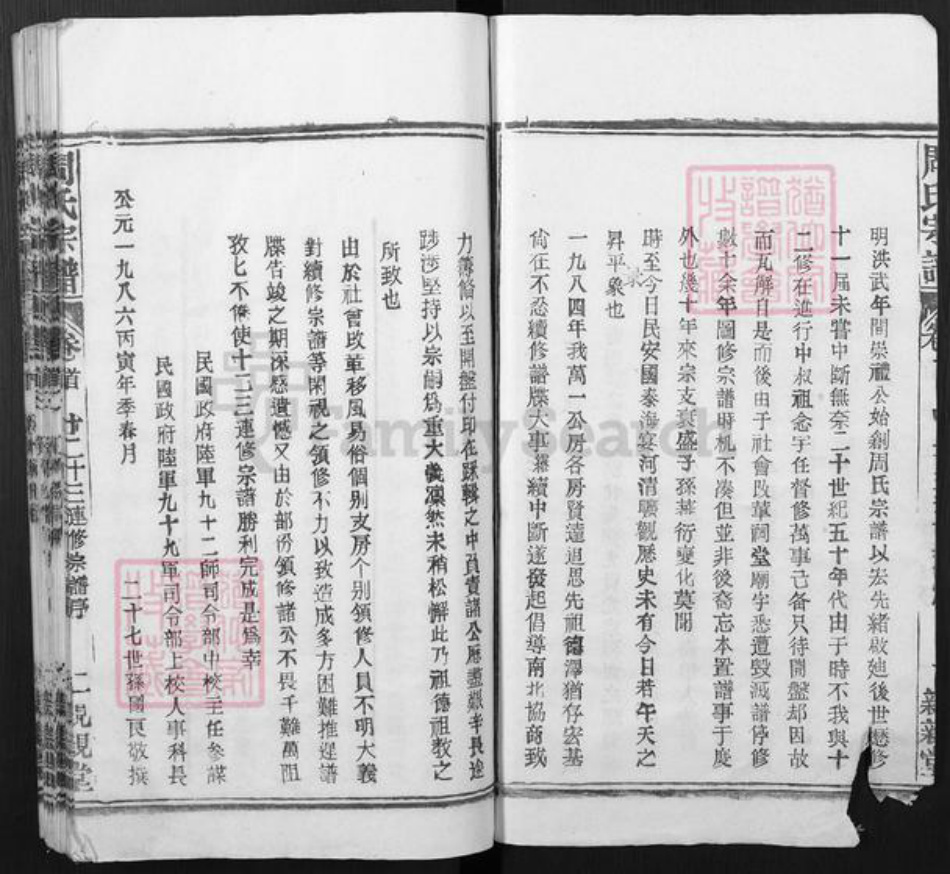 周氏宗譜
明洪武年間崇禮公始創周氏宗譜以宏先緒啟迪後世歷修
十一屆未嘗中斷無奈二十世紀五十年代由于時不我與十
二修在進行中叔祖念宇任督修萬事已备只待開盤却因故
而瓦解自是而後由于社會改革祠堂廟宇悉遭毀滅譜停修
數十余年圖修宗譜時机不湊但並非後裔忘本置譜事于度
外也幾十年來宗支衰盛子孫蕃衍變化莫聞
時至今日民安國泰海宴河清曠觀歷史未有今日若午天之
昇平景象也
一九八四年我萬一公房各房賢達追思先祖德澤猶存宏基
尚在不忍續修譜牒大事繼續中斷遂發起倡導南北協商致
力籌備以至開盤付印在跃輯之中負責諸公歷盡艱辛長途
跋涉堅持以宗嗣為重大義凛然未稍松懈此乃祖德祖教之
所致也
由於社會改革移風易俗個别支房个别領修人員不明大義
對續修宗譜等閑視之領修不力以致造成多方困難推遲譜
牒告竣之期深感遺憾又由於部份領修諸公不畏千難萬阻
孜匕不倦使十二三連修宗譜勝利完成是為幸
民國政府陸軍九十二師司令部中校主任參謀
民國政府陸軍九十九軍司令部上校人事科長
二十七世孫國良敬撰
公元一九八六丙寅年季春月
周氏宗譜 卷首 廿二十三連修宗譜序 親堂
FamilySearch